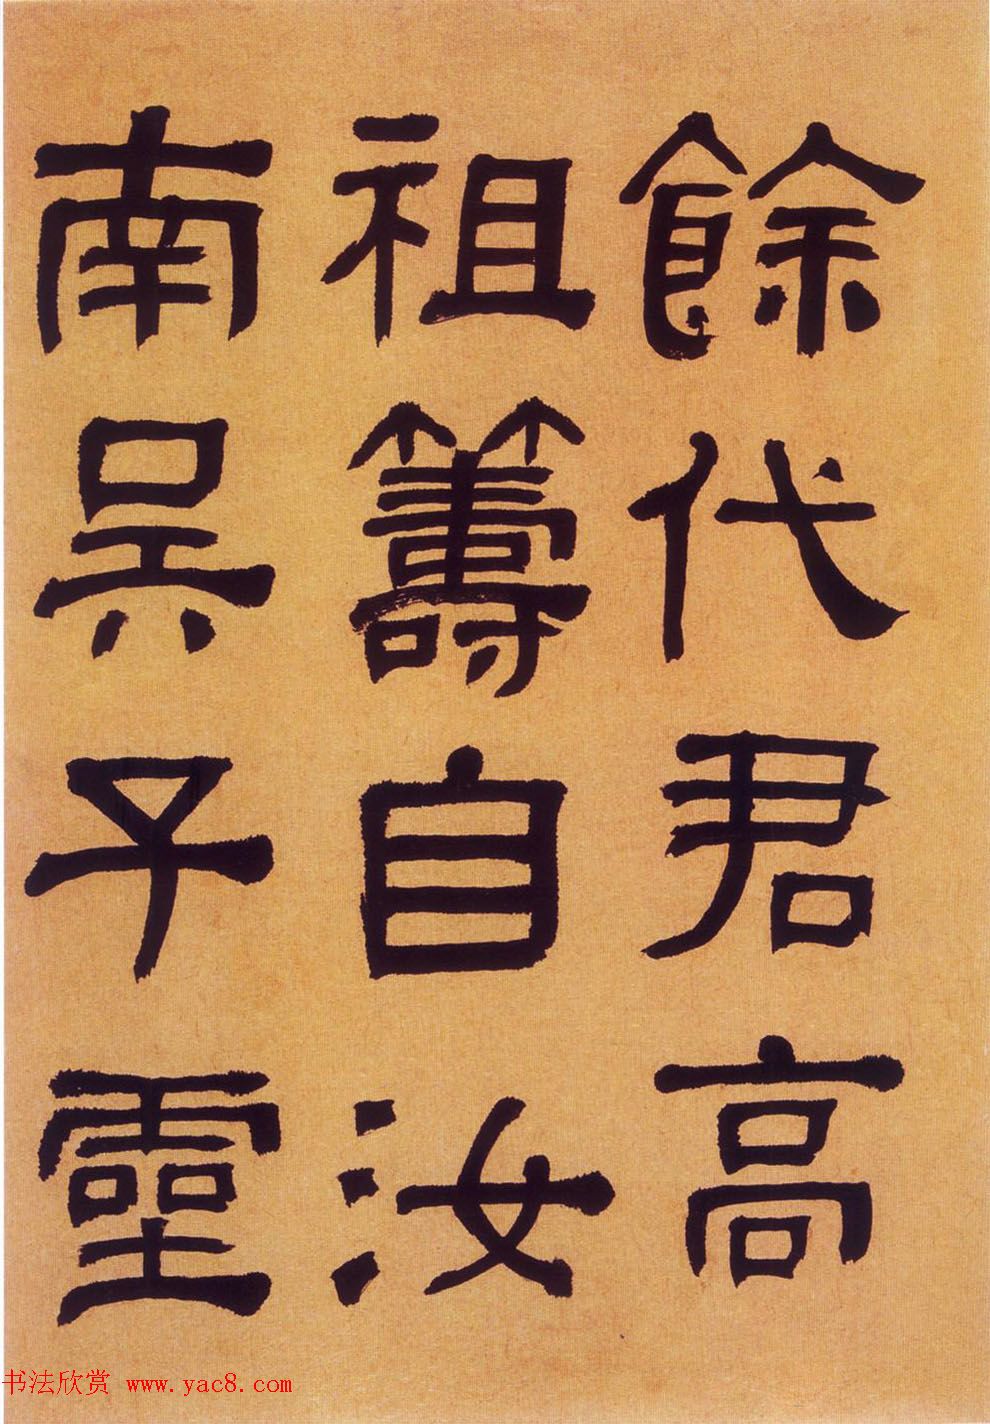 餘代君高
祖籌自汝
南吳子靈
书法欣赏 www.yac8.com